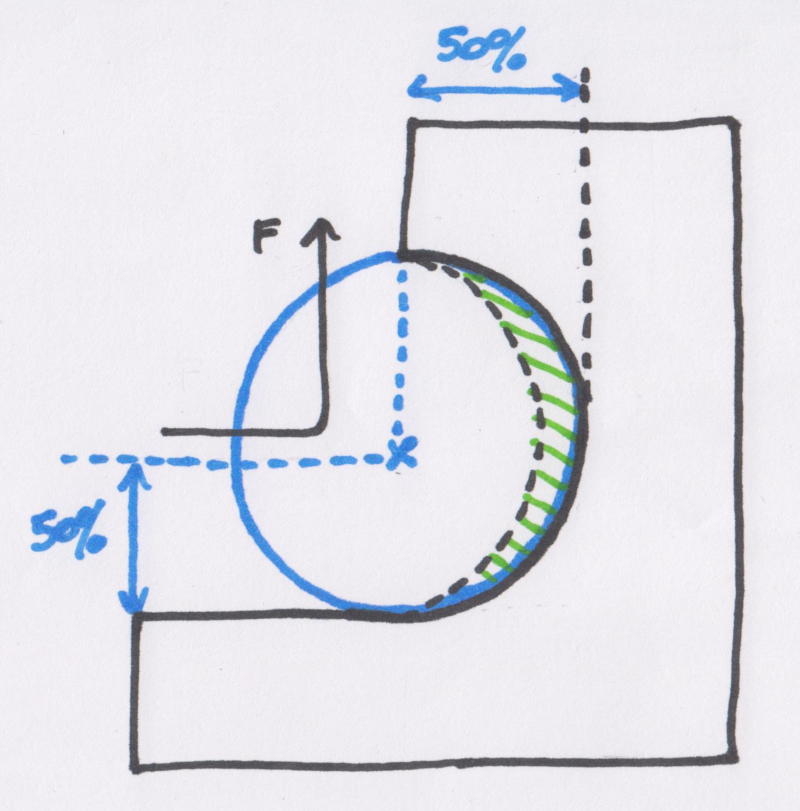 50%
F
50%